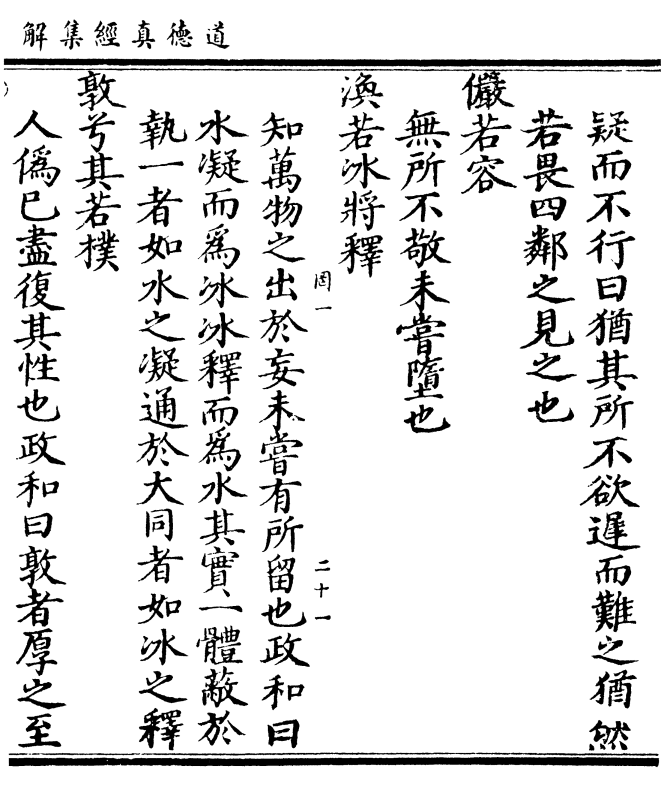 道德真經集解
疑而不行曰猶其所不欲遲而難之猶然
若畏四鄰之見之也
儼若容
無所不敬未嘗墮也
渙若冰將釋
知萬物之出於妄未嘗有所留也政和曰
水凝而爲冰冰釋而爲水其實一體蔽於
執一者如水之凝通於大同者如冰之釋
敦兮其若樸
人僞已盡復其性也政和曰敦者厚之至
罔一
二十一